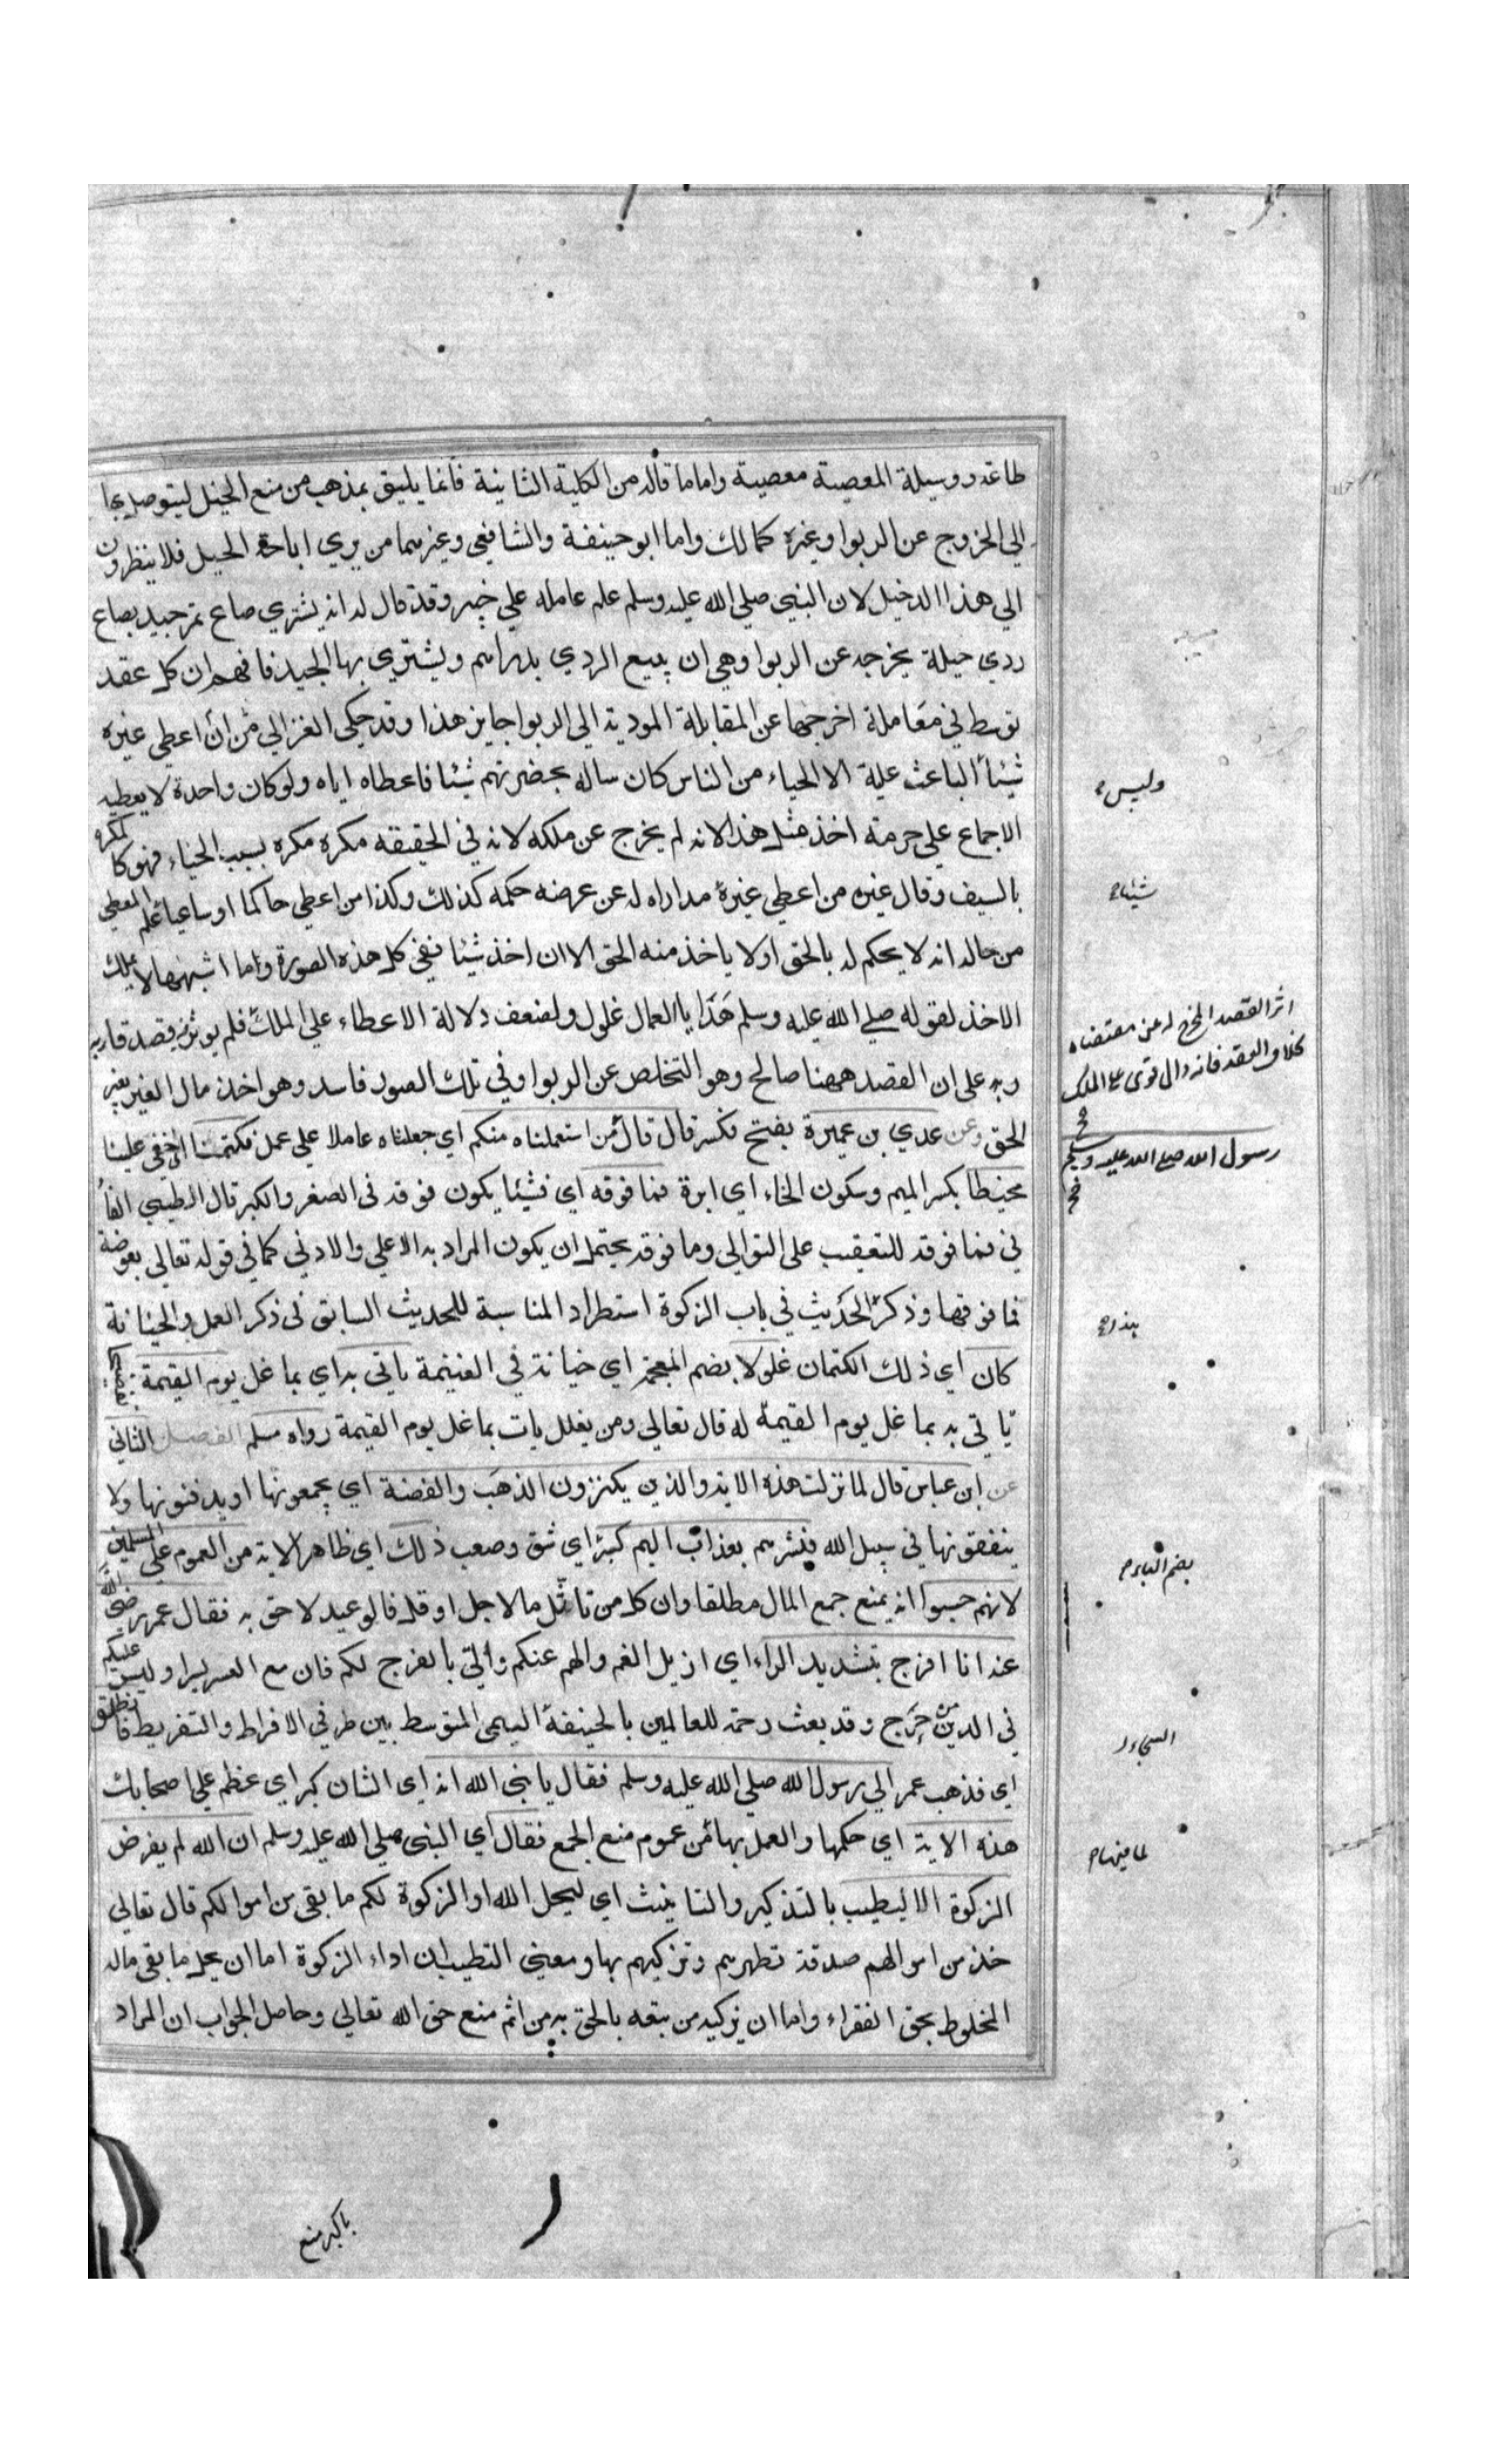 طاعة ووسيلة المعصية معصية واما ما قاله من الكلية الثانية فانما يليق بمذهب من منع الحيل ليتوصل بها
الي الخروج عن الربوا وغيره كمالك واما ابو حنيفة والشافعي وغيرهما من يري اباحة الحيل فلا ينظرون
الي هذا الدخيل لان النبي صلي الله عليه وسلم علم عامله علي خيبر وقد قال له انه يشتري صاع تمر جيد بصاع
ردي حيلة يخرجه عن الربوا وهي ان يبيع الردي بدراهم ويشتري بها الجيد فافهم ان كل عقد
توسط في معاملة اخرجها عن المقابلة المودية الي الربوا جايز هذا وقد حكي الغزالي من ان اعطي غيره
شيئا الباعث علية الا الحياء من الناس كان ساله بحضرتهم شيئا فاعطاه اياه ولو كان واحدة لا يعطيه
الاجماع علي حرمة اخذ مثل هذا لانه لم يخرج عن ملكه لانه في الحقيقه مكره مكره بسبب الحياء فهو كالمكره
بالسيف وقال غيره من اعطي غيرة مداراه له عن عرضه حكمه كذلك وكذا من اعطي حاكما او ساعيا علم المعطي
من حاله انه لا يحكم له بالحق اولا ياخذ منه الحق الا ان اخذ شيئا نفي كل هذه الصورة واما اشبهها لا يملك
الاخذ لقوله صلے الله عليه وسلم هدايا العمال غلول ولضعف دلالة الاعطاء علي الملك فلم يوثر قصد قاربه
ربه علي ان القصد ههنا صالح وهو التخلص عن الربوا وفي تلك الصور فاسد وهو اخذ مال الغير بغير
الحق وعن عدي بن عميرة بفتح فكسر قال قال من استعملناه منكم اي جعلناه عاملا علي عمل فكتمنا اي اخفي علينا
مخيطا بكسر الميم وسكون الخاء اي ابرة فما فوقه اي فشيئا يكون فوقه فى الصغر والكبر قال الطيبي الفا
في فما فوقه للتعقيب على التوالي وما فوقه يحتمل ان يكون المراد به الاعلي والادني كما في قوله تعالي بعوضة
فما فوقها وذكر الحديث في باب الزكوة استطراد المناسبة للحديث السابق فى ذكر العمل والخيانة
كان اي ذلك الكتمان غلولا بضم المعجمة اي خيانة في الغنيمة ياتى به اي بما غل يوم القيمة
ياتي به بما غل يوم القيمة له قال تعالي ومن يغلل يات بما غل يوم القيمة رواه مسلم الفصل الثاني
عن ابن عباس قال لما نزلت هذه الاية والذين يكنزون الذهب والفضة اي يجمعونها او يدفنونها ولا
ينفقونها في سبيل الله فبشرهم بعذاب اليم كبر اي شق وصعب ذلك اي ظاهر الاية من العموم علي المسلمين
لانهم حسبوا انه يمنع جمع المال مطلقا وان كل من تاثل مالا جل او قل فالوعيد لاحق به فقال عمر رضي الله
عنه انا افرج بتشديد الراء اي ازيل الغم والهم عنكم وأتي بالفرج لكم فان مع العسر يسرا وليس عليكم
في الدين من حرج وقد بعث رحمة للعالمين بالحنيفة السمي المتوسط بين طرفي الافراط والتفريط فانطلق
اي فذهب عمر الي رسول الله صلي الله عليه وسلم فقال يا نبى الله انه اى الشان كبر اي عظم علي اصحابك
هذه الاية اي حكمها والعمل بها من عموم منع الجمع فقال اي النبى صلي الله عليه وسلم ان الله لم يفرض
الزكوة الا ليطيب بالتذكير والتانيث اي ليحل الله او الزكوة لكم ما بقى من اموالكم قال تعالي
خذ من اموالهم صدقة تطهرهم وتزكيهم بها ومعني التطييب ان اداء الزكوة اما ان يحل ما بقى ماله
المخلوط بحق الفقراء واما ان يزكيه من تبعه بالحق به من اثم منع حق الله تعالي وحاصل الجواب ان المراد
وليس
شيئا
اثر القصد المخرج له عن مقتضاه
بخلاف العقد فانه دال قوى على الملك
رسول الله صلى الله عليه وسلم
بضم الباء
السمحاء
لما فيها